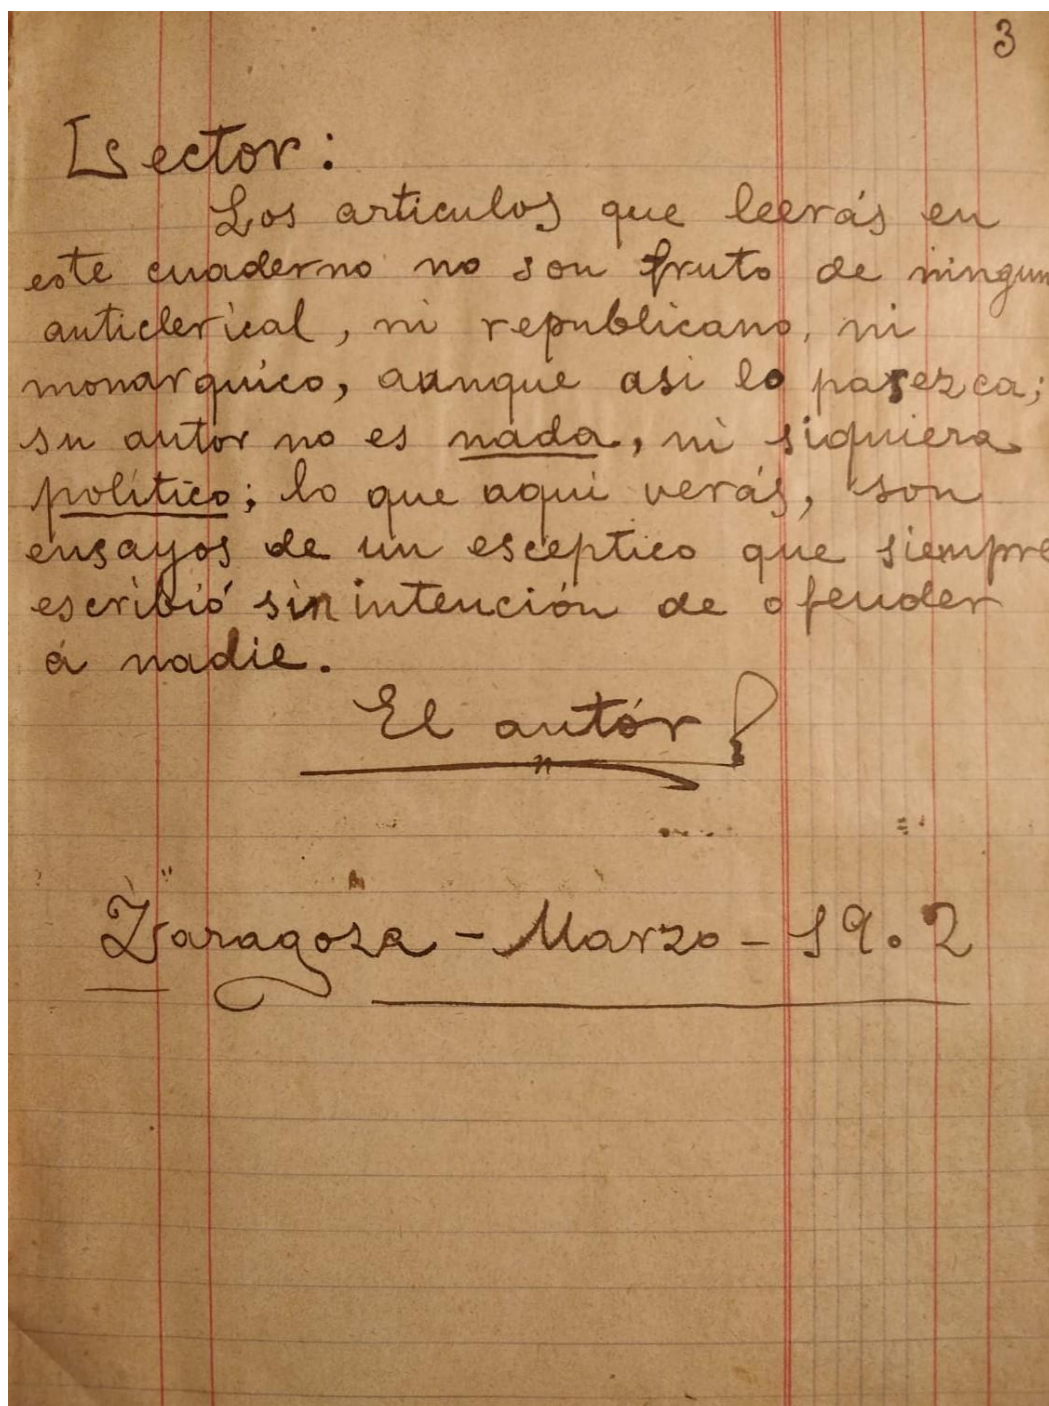 3
Lector:
Los articulos que leerás en
este cuaderno no son fruto de ningun
anticlerical, ni republicano, ni
monarquico, aunque asi lo parezca;
su autor no es nada, ni siquiera
político; lo que aqui verás, son
ensayos de un esceptico que siempre
escribió sin intención de ofender
á nadie.
El autór
Zaragoza - Marzo - 19.2